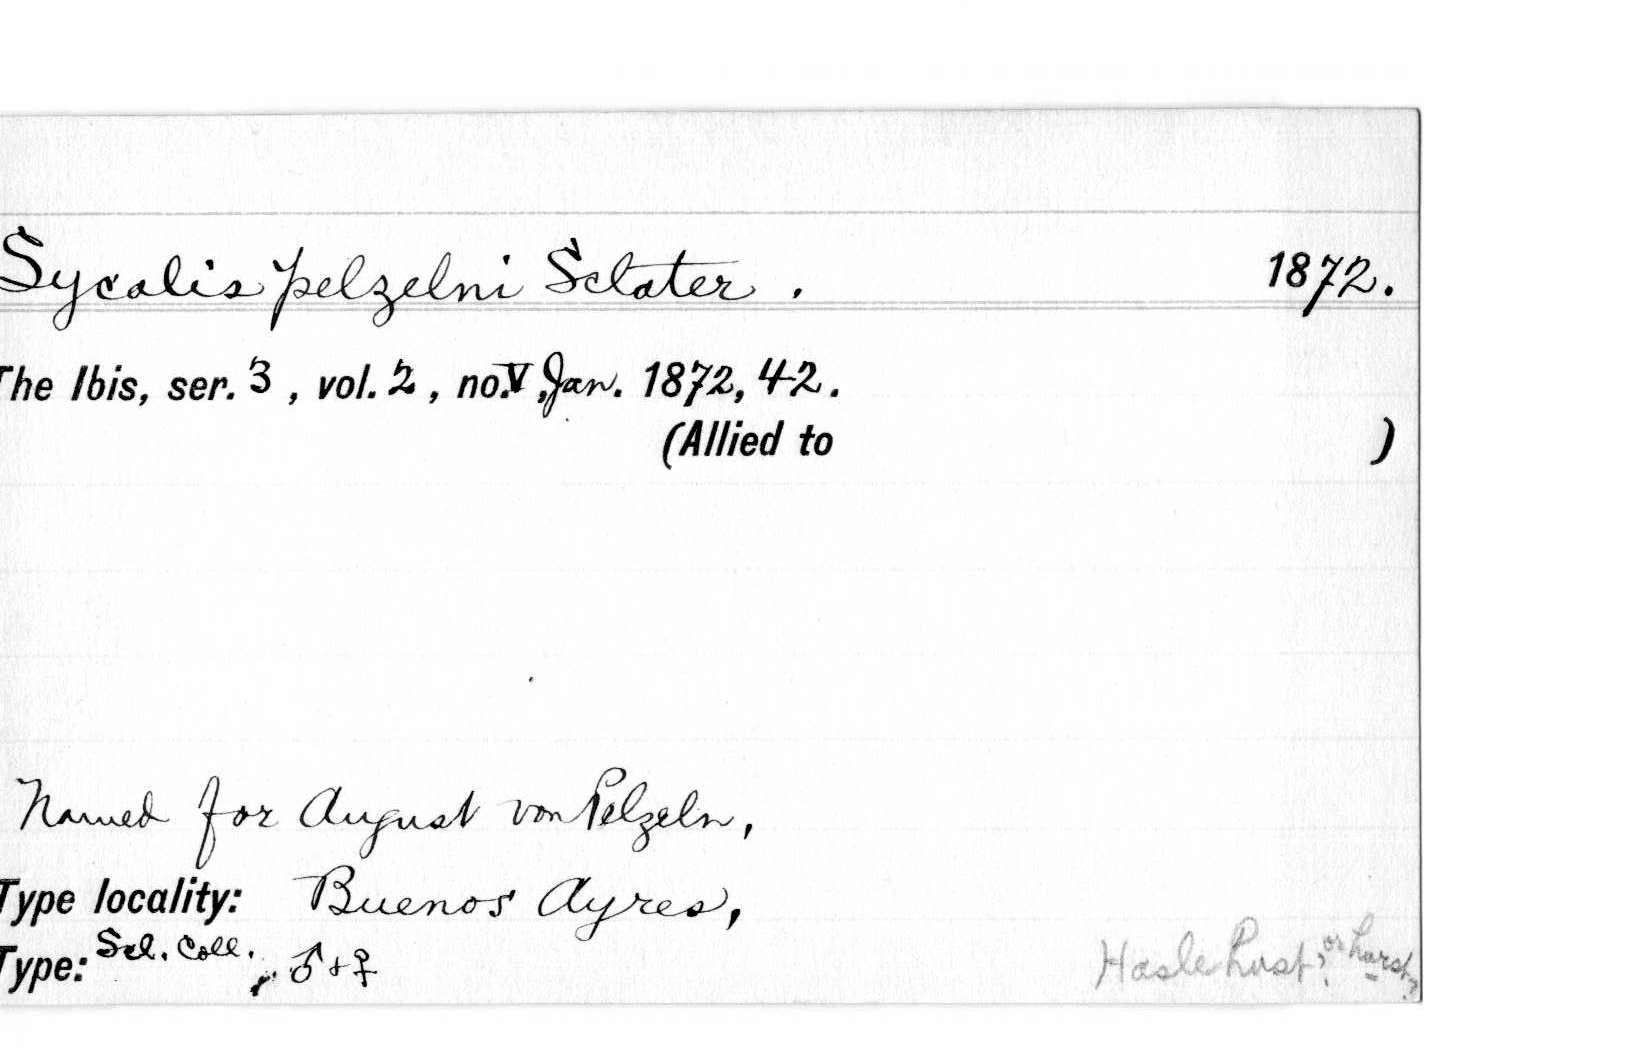 Sycalis pelzelni Sclater . 1872.
The Ibis, ser. 3 , vol. 2 , no. V , Jan. 1872, 42.
(Allied to )
Named for August von Pelzeln,
Type locality: Buenos Ayres,
Type: Scl. Coll. , ♂ + ♀
Haslehust? or hurst?